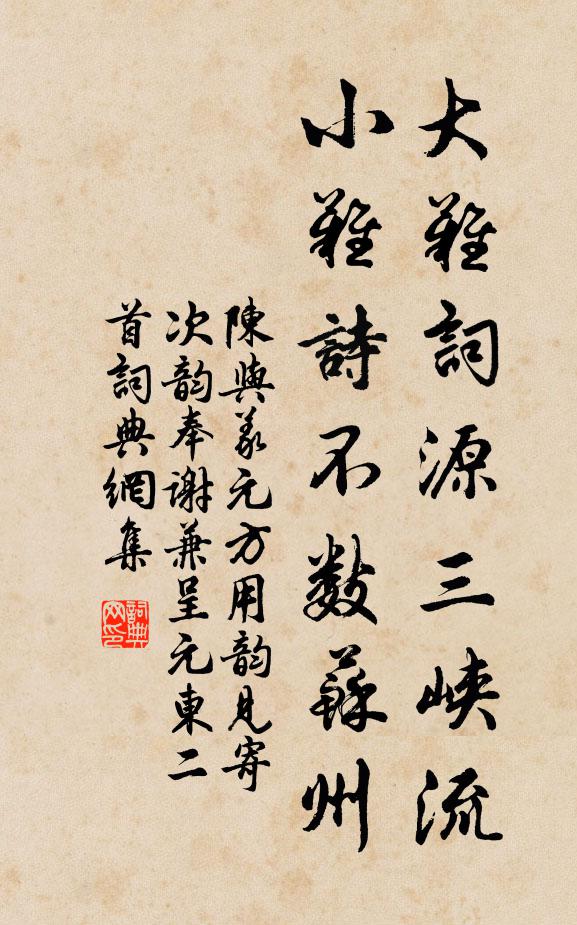 大難詞源三峽流
小難詩不數蘇州
陳與義元方用韵見寄
次韵奉謝兼呈元東二
首詞典網集
詞典网印